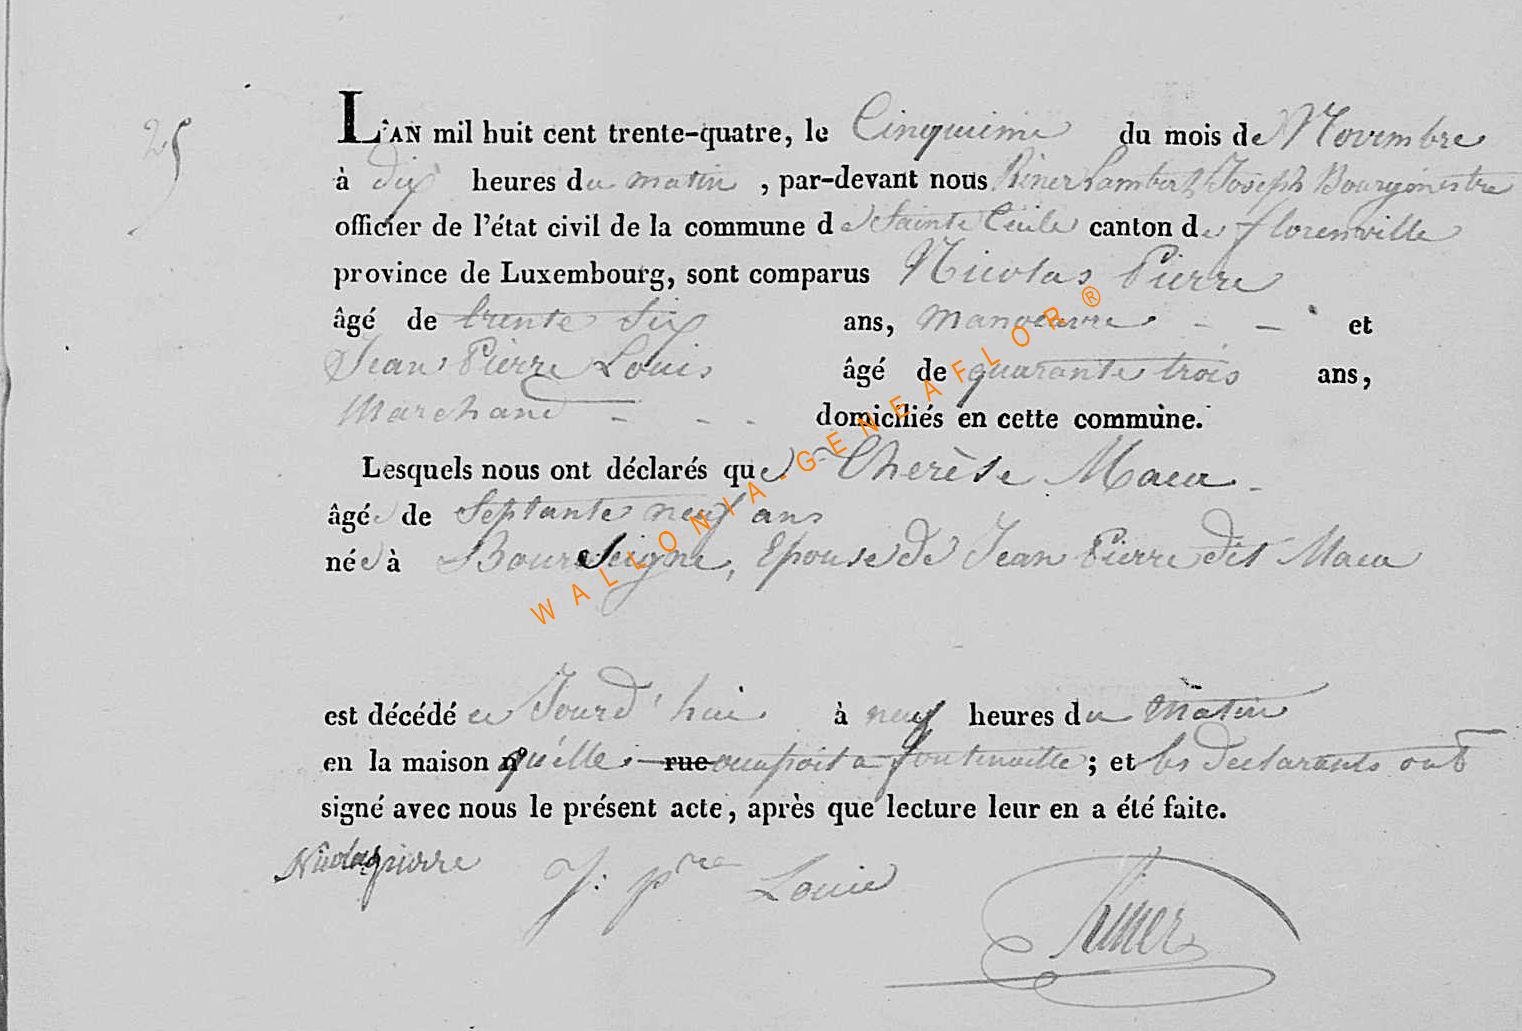 25
L'AN mil huit cent trente-quatre, le Cinquieme du mois de Novembre
à dix heures du matin, par-devant nous Riner Lambert Joseph Bourgmestre
officier de l'état civil de la commune de Sainte Cécile canton de florenville
province de Luxembourg, sont comparus Nicolas Pierre
âgé de trente six ans, manoeuvre - - et
Jean Pierre Louis âgé de quarante trois ans,
Marchand - - - domiciliés en cette commune.
Lesquels nous ont déclarés que Thérèse Maea
âgée de Septante neuf ans
née à Bourseigne, Epouse de Jean Pierre dit Maea
est décédé ce Jourd'hui à neuf heures du matin
en la maison qu'elle rue occupoit a fontenoille ; et les Declarants ont
signé avec nous le présent acte, après que lecture leur en a été faite.
Nicolas pierre J: pre Louis Riner
WALLONIA-GENEAFLOR®